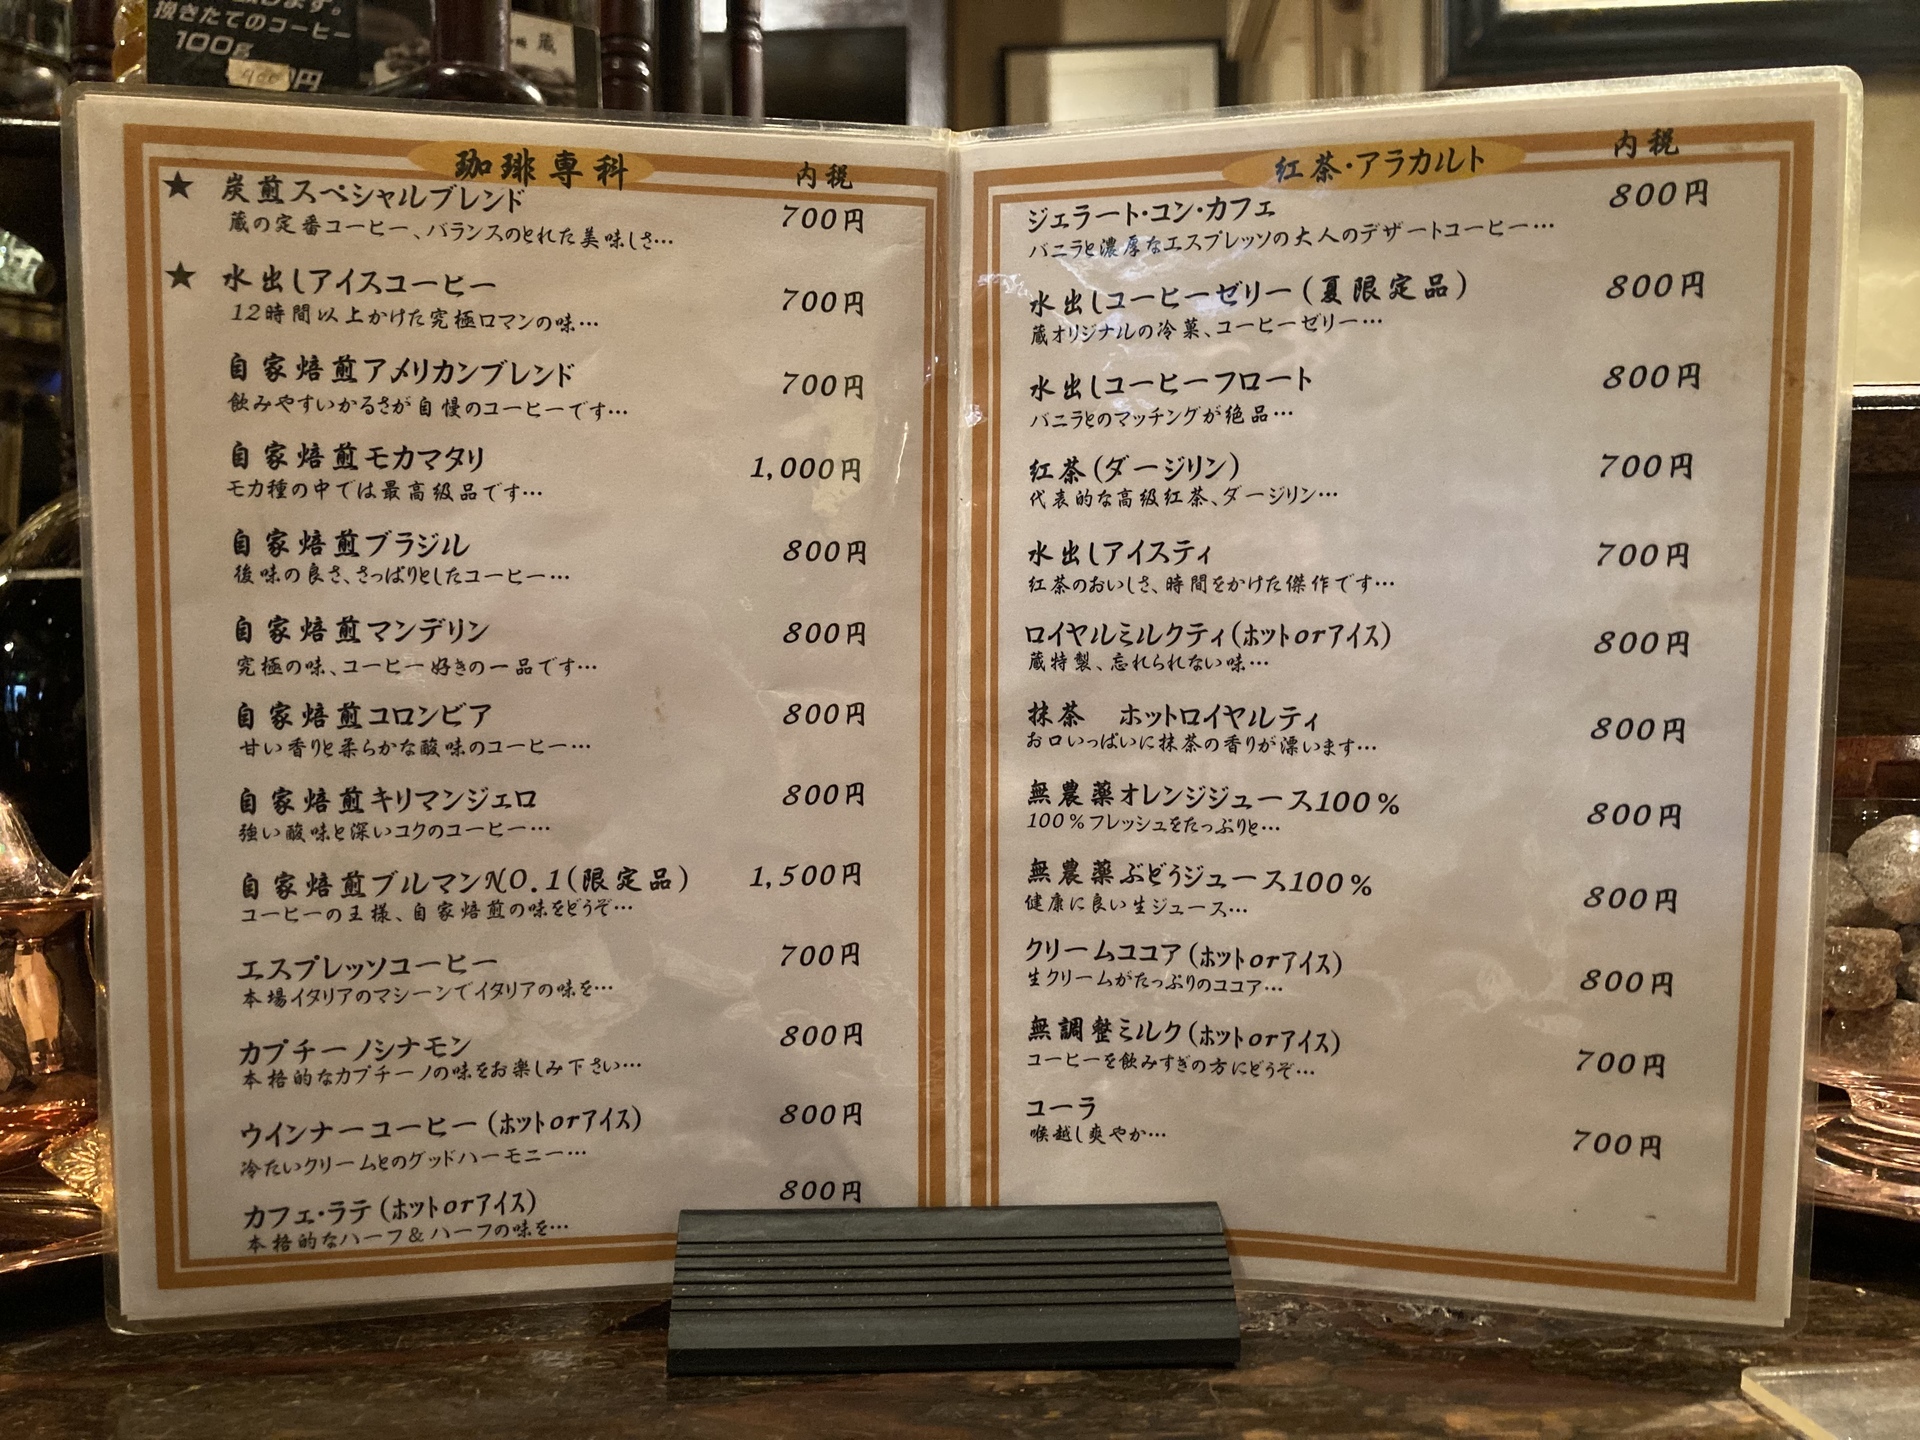 します。
挽きたてのコーヒー
100g
円
蔵
珈琲専科
内税
★ 炭煎スペシャルブレンド 700円
蔵の定番コーヒー、バランスのとれた美味しさ…
★ 水出しアイスコーヒー 700円
12時間以上かけた究極ロマンの味…
自家焙煎アメリカンブレンド 700円
飲みやすいかるさが自慢のコーヒーです…
自家焙煎モカマタリ 1,000円
モカ種の中では最高級品です…
自家焙煎ブラジル 800円
後味の良さ、さっぱりとしたコーヒー…
自家焙煎マンデリン 800円
究極の味、コーヒー好きの一品です…
自家焙煎コロンビア 800円
甘い香りと柔らかな酸味のコーヒー…
自家焙煎キリマンジェロ 800円
強い酸味と深いコクのコーヒー…
自家焙煎ブルマンNO.1(限定品) 1,500円
コーヒーの王様、自家焙煎の味をどうぞ…
エスプレッソコーヒー 700円
本場イタリアのマシーンでイタリアの味を…
カプチーノシナモン 800円
本格的なカプチーノの味をお楽しみ下さい…
ウインナーコーヒー(ホットorアイス) 800円
冷たいクリームとのグッドハーモニー…
カフェ・ラテ(ホットorアイス) 800円
本格的なハーフ&ハーフの味を…
紅茶・アラカルト
内税
ジェラート・コン・カフェ 800円
バニラと濃厚なエスプレッソの大人のデザートコーヒー…
水出しコーヒーゼリー(夏限定品) 800円
蔵オリジナルの冷菓、コーヒーゼリー…
水出しコーヒーフロート 800円
バニラとのマッチングが絶品…
紅茶(ダージリン) 700円
代表的な高級紅茶、ダージリン…
水出しアイスティ 700円
紅茶のおいしさ、時間をかけた傑作です…
ロイヤルミルクティ(ホットorアイス) 800円
蔵特製、忘れられない味…
抹茶 ホットロイヤルティ 800円
お口いっぱいに抹茶の香りが漂います…
無農薬オレンジジュース100% 800円
100%フレッシュをたっぷりと…
無農薬ぶどうジュース100% 800円
健康に良い生ジュース…
クリームココア(ホットorアイス) 800円
生クリームがたっぷりのココア…
無調整ミルク(ホットorアイス) 700円
コーヒーを飲みすぎの方にどうぞ…
コーラ 700円
喉越し爽やか…